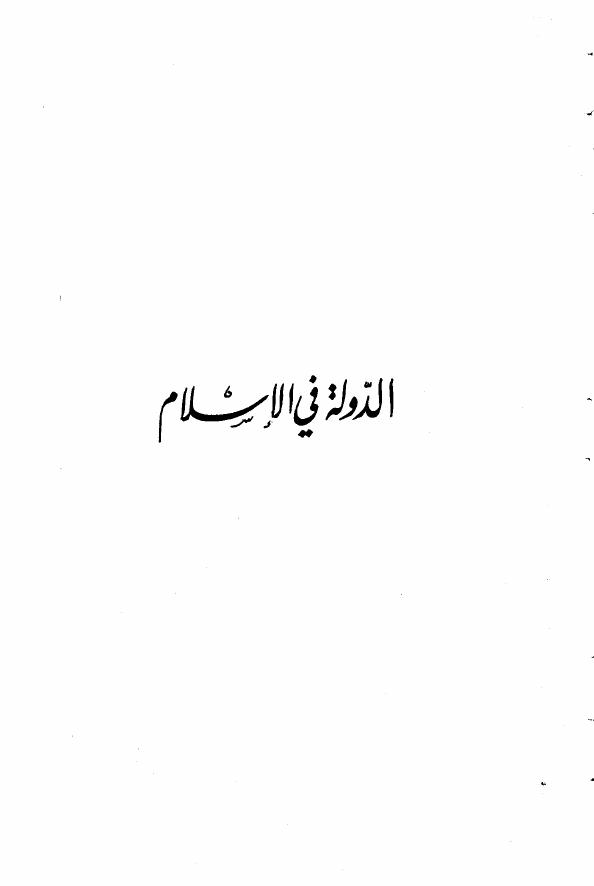 الدّولة في الإسلام